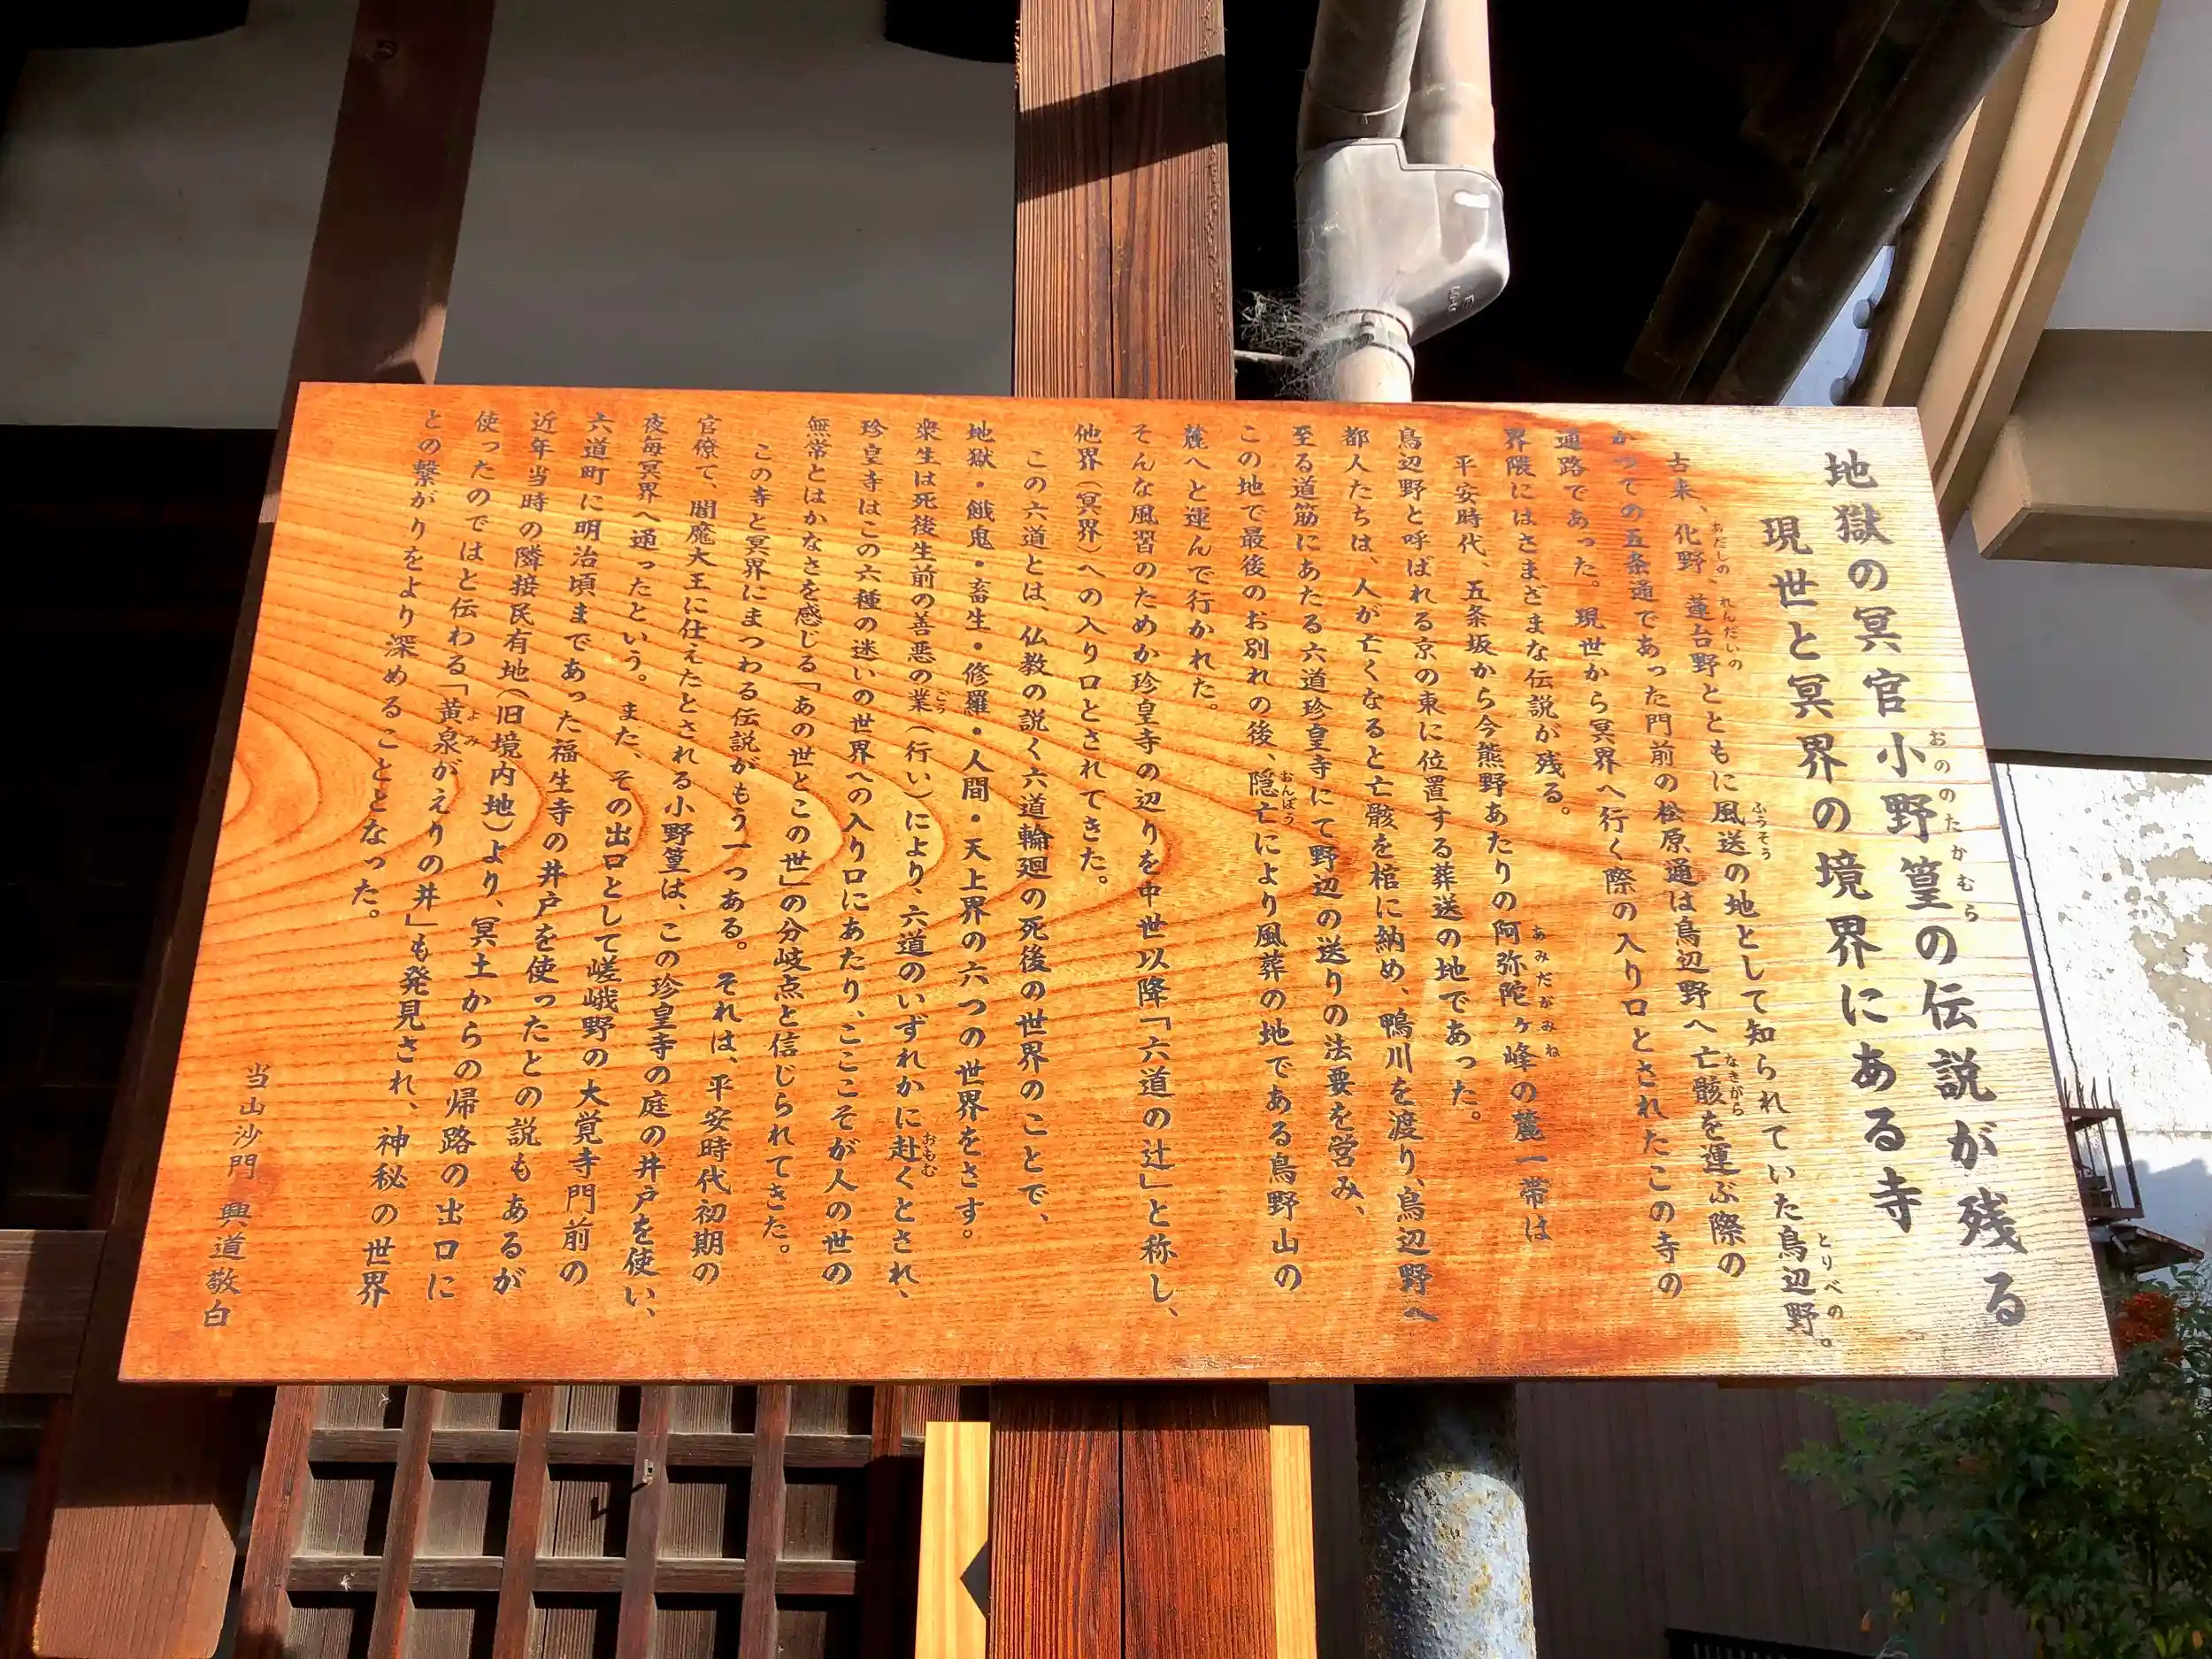 地獄の冥官小野篁の伝説が残る
現世と冥界の境界にある寺
古来、化野、蓮台野とともに風送の地として知られていた鳥辺野。
かつての五条通であった門前の松原通は鳥辺野へ亡骸を運ぶ際の
通路であった。現世から冥界へ行く際の入り口とされたこの寺の
界隈にはさまざまな伝説が残る。
平安時代、五条坂から今熊野あたりの阿弥陀ヶ峰の麓一帯は
鳥辺野と呼ばれる京の東に位置する葬送の地であった。
都人たちは、人が亡くなると亡骸を棺に納め、鴨川を渡り、鳥辺野へ
至る道筋にあたる六道珍皇寺にて野辺の送りの法要を営み、
この地で最後のお別れの後、隠亡により風葬の地である鳥野山の
麓へと運んで行かれた。
そんな風習のためか珍皇寺の辺りを中世以降「六道の辻」と称し、
他界（冥界）への入り口とされてきた。
この六道とは、仏教の説く六道輪廻の死後の世界のことで、
地獄・餓鬼・畜生・修羅・人間・天上界の六つの世界をさす。
衆生は死後生前の善悪の業（行い）により、六道のいずれかに赴くとされ、
珍皇寺はこの六種の迷いの世界への入り口にあたり、ここそが人の世の
無常とはかなさを感じる「あの世とこの世」の分岐点と信じられてきた。
この寺と冥界にまつわる伝説がもう一つある。それは、平安時代初期の
官僚で、閻魔大王に仕えたとされる小野篁は、この珍皇寺の庭の井戸を使い、
夜毎冥界へ通ったという。また、その出口として嵯峨野の大覚寺門前の
六道町に明治頃まであった福生寺の井戸を使ったとの説もあるが
近年当時の隣接民有地（旧境内地）より、冥土からの帰路の出口に
使ったのではと伝わる「黄泉がえりの井」も発見され、神秘の世界
との繋がりをより深めることとなった。
当山沙門　興道敬白